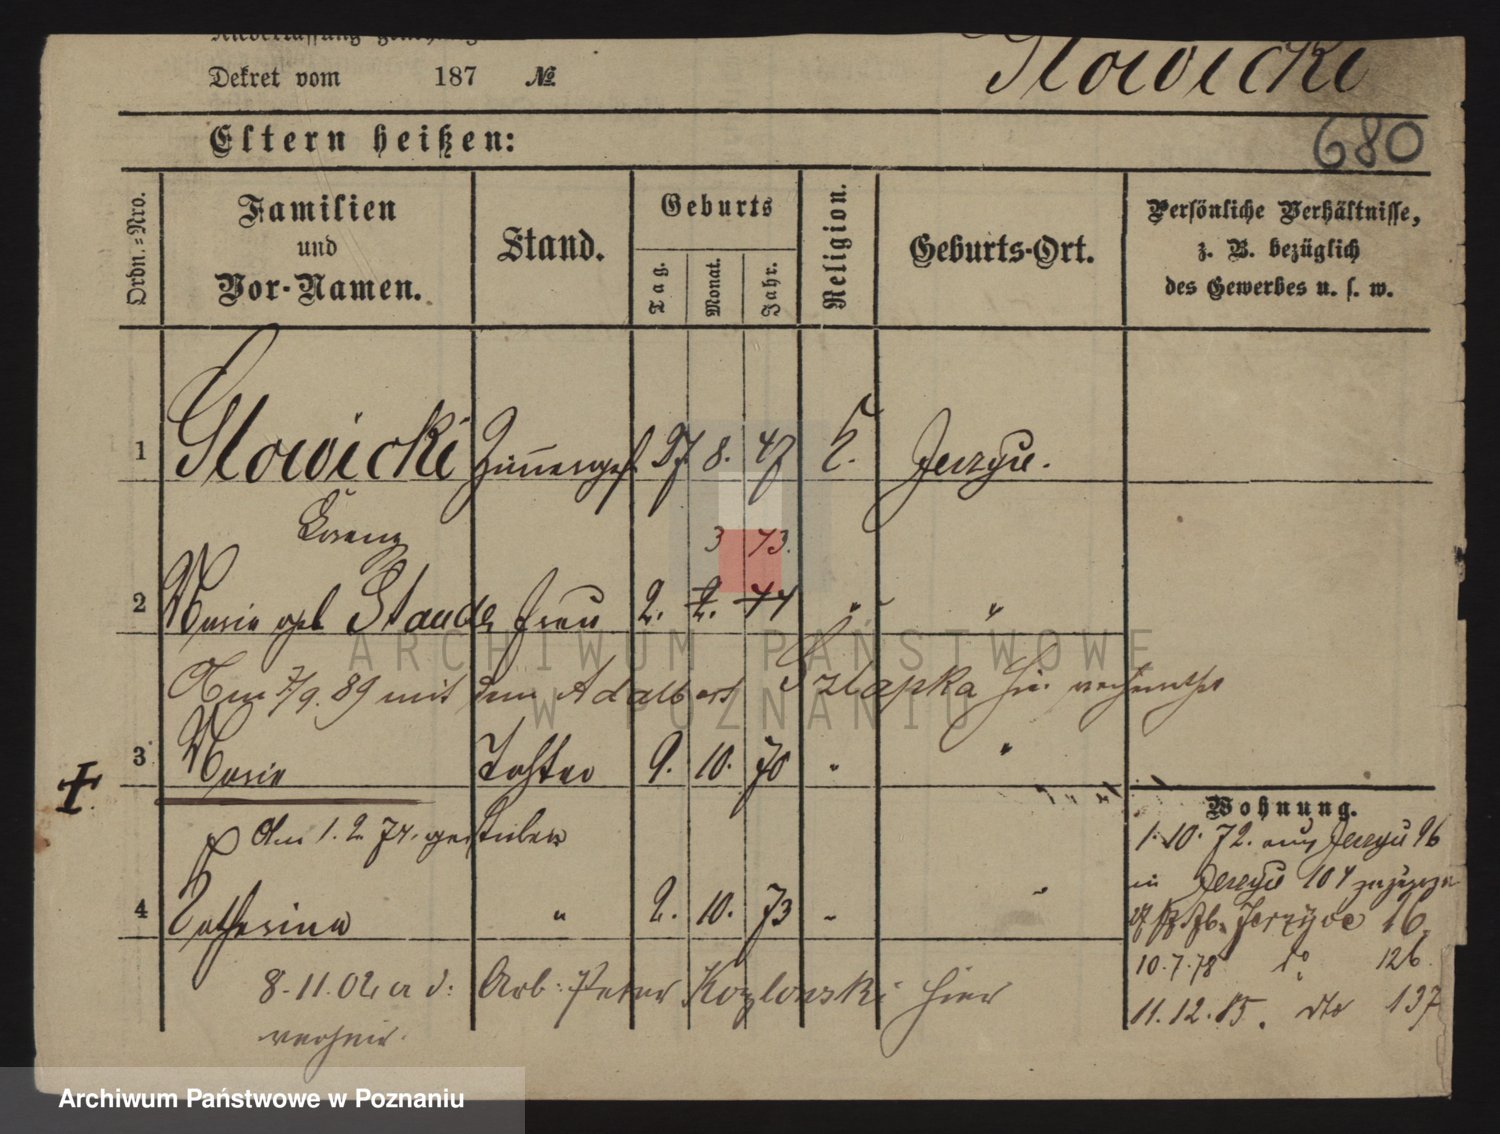 Dekret vom 187 №
Slowicki
680
Eltern heißen:
Ordn.=Nro.
Familien
und
Vor-Namen.
Stand.
Geburts
Tag.
Monat.
Jahr.
Religion.
Geburts-Ort.
Persönliche Verhältnisse,
z. B. bezüglich
des Gewerbes u. s. w.
1 Slowicki Zimmerges. 27 8. 47 k. Jerzyce.
Lorenz
3 73.
2 Marie geb Staude Frau 2. 2. 44 " "
Am 7/9. 89 mit dem Adalbert Szlapka hier verheirathet
3 Marie Tochter 9. 10. 70 " "
Wohnung.
Am 1. 2 74. gestorben
1. 10. 72. aus Jerzyce 96
in Jerzyce 104 zugezogen
4 Catharina " 2. 10. 73 " "
Jerzyce 16.
10. 7. 78 do 126.
8. 11. 02 a d: Arb: Peter Kozlowski hier
11. 12. 85. dto 137
verheir.
ARCHIWUM PAŃSTWOWE
W POZNANIU
Archiwum Państwowe w Poznaniu